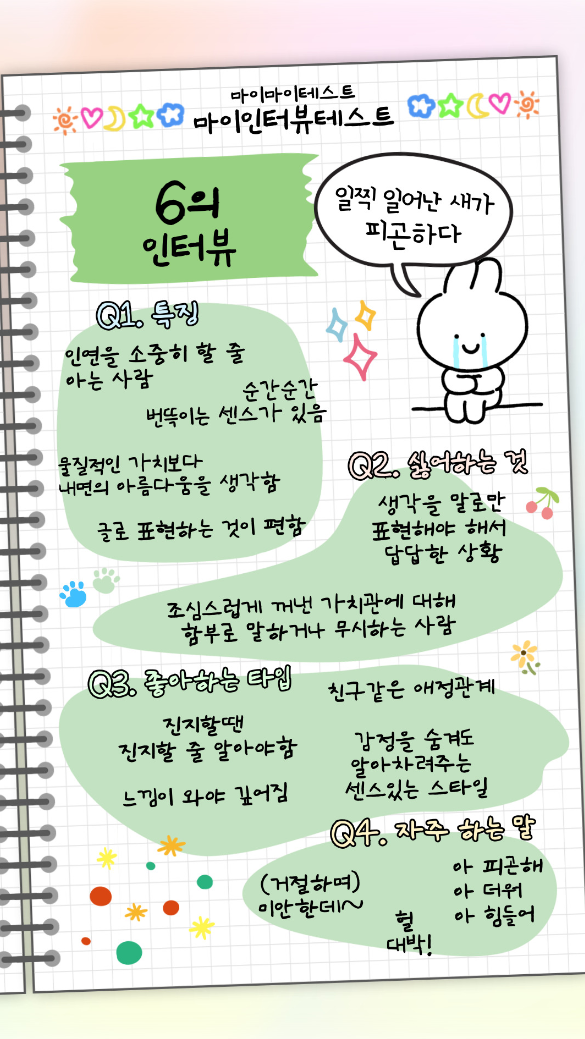 마이마이테스트
마이인터뷰테스트
6의
인터뷰
일찍 일어난 새가
피곤하다
Q1. 특징
인연을 소중히 할 줄
아는 사람
순간순간
번뜩이는 센스가 있음
물질적인 가치보다
내면의 아름다움을 생각함
글로 표현하는 것이 편함
Q2. 싫어하는 것
생각을 말로만
표현해야 해서
답답한 상황
조심스럽게 꺼낸 가치관에 대해
함부로 말하거나 무시하는 사람
Q3. 좋아하는 타입
진지할땐
진지할 줄 알아야함
느낌이 와야 깊어짐
친구같은 애정관계
감정을 숨겨도
알아차려주는
센스있는 스타일
Q4. 자주 하는 말
(거절하며)
미안한데~
헐
대박!
아 피곤해
아 더워
아 힘들어